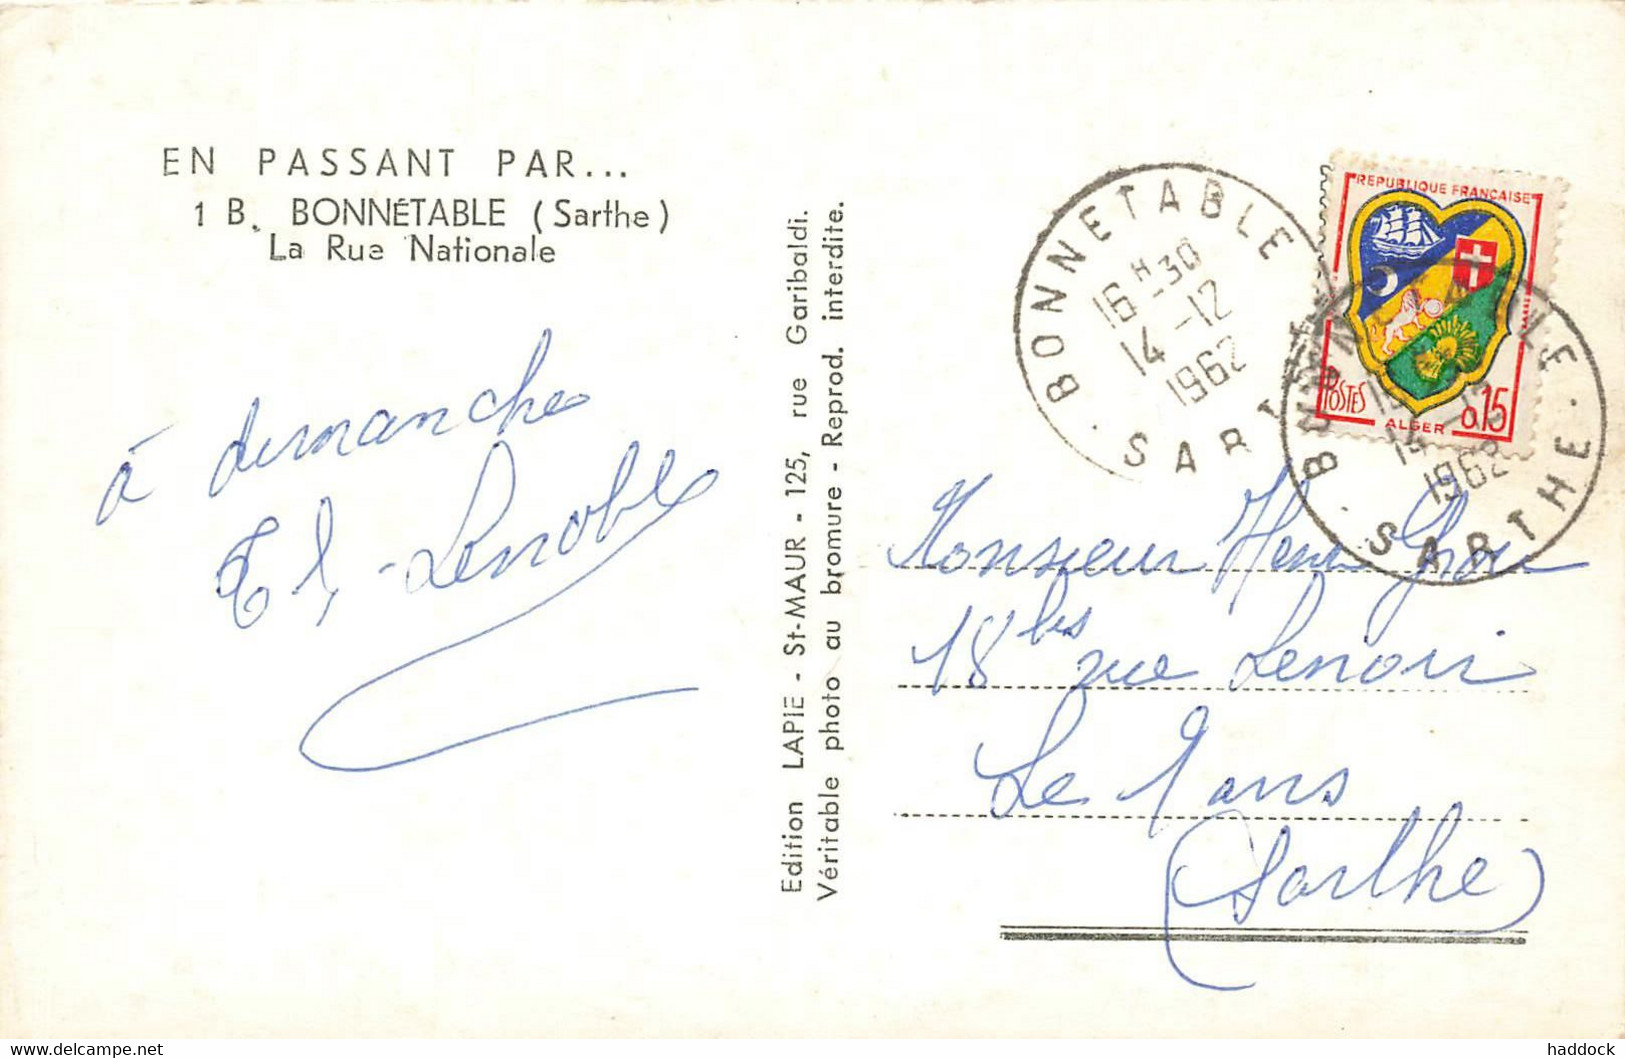 EN PASSANT PAR...
1 B. BONNÉTABLE (Sarthe)
La Rue Nationale
à dimanche
Lenoble
Edition LAPIE - St-MAUR - 125, rue Garibaldi.
Véritable photo au bromure - Reprod. interdite.
BONNETABLE
16 H 30
14 - 12
1962
SART
REPUBLIQUE FRANÇAISE
POSTES
ALGER
0,15
BONNETABLE
14 - 12
1962
SARTHE
Monsieur Henri
18 bis rue Lenoir
Le Mans
(Sarthe)
www.delcampe.net
haddock